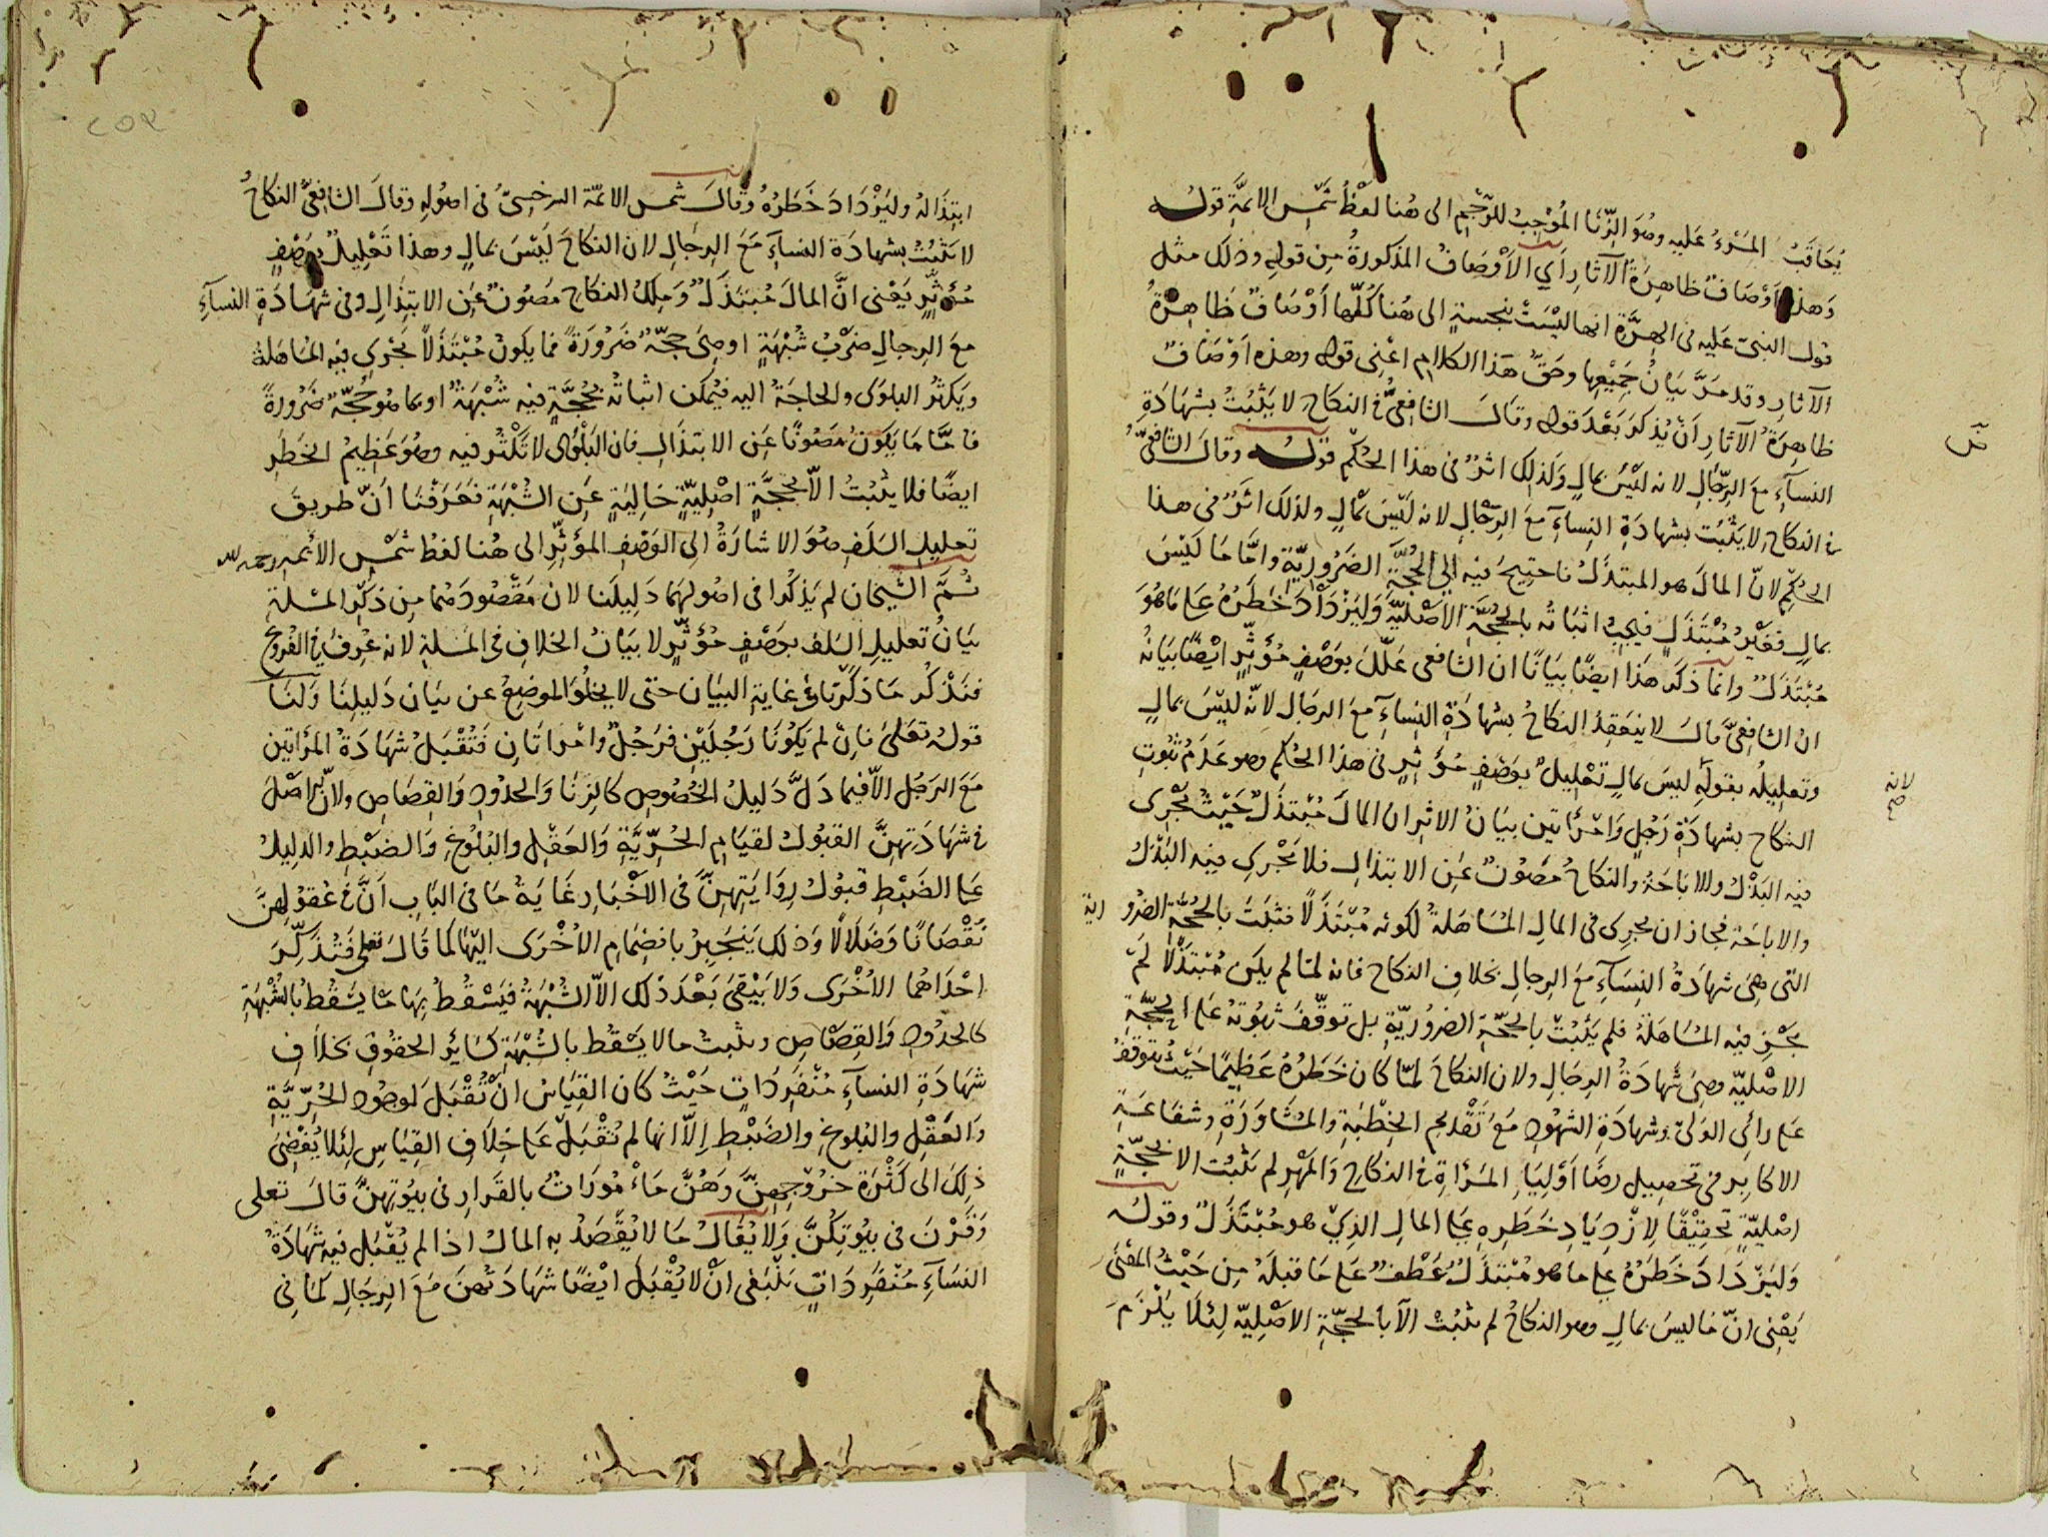 يُعَاقَبُ المَرْءُ عَليه وهُوَ الزِّنَا المُوْجِبُ للرَّجْمِ الى هُنا لفظُ شَمْسِ الائمَّةِ قوله
وَهذه اَوْصَافٌ ظاهِرَةُ الآثارِ اَيِ الاَوْصَافُ المذكورةُ مِن قولِهِ وذلك مثل
قول النبيّ عَليه في الهرَّةِ انها ليْسَتْ بنجسةٍ الى هُنا كُلّها اَوْصَافٌ ظَاهِرَةُ
الآثارِ وقد مَرَّ بَيَانُ جَمِيْعِها وحَقّ هَذا الكلامِ اعْنِى قوله وهذه اَوْصَافٌ
ظاهِرَةُ الآثارِ اَنْ يُذكرَ بَعْدَ قوله وقالَ الشافعىُّ في النكاحِ لا يَثْبُتُ بشهَادَةِ
النسآءِ مَعَ الرِّجَالِ لانه ليْسَ بمالٍ وَلذلك اثرٌ فى هذا الحُكْمِ قوله وقالَ الشافعىّ
فى النكاح لا يَثْبُت بشهادَةِ النِسآءِ مَعَ الرِّجَالِ لانه ليْسَ بمالٍ ولذلك اثَرٌ فى هذا
الحُكْمِ لانّ المالَ هو المبتذَلُ فاحتِيجَ فيه الى الحُجَّةِ الضَرُوريّةِ وامَّا مَا ليْسَ
بمالٍ فغَيْرُ مُبْتَذَلٍ فيجبُ اثباتُه بالحُجَّةِ الاَصْلِيَّةِ وَلِيَزْدَادَ خَطَرُهُ عَلى مَا هُوَ
مُبْتَذَلٌ وانما ذكَرَ هَذا ايضًا بيَانًا ان الشافعى عَلّلَ بوَصْفٍ مُؤثِّرٍ ايْضًا بَيَانُه
ان الشافِعىَّ قالَ لا ينعَقِدُ النكاحُ بشهادَةِ النِسآءِ مَعَ الرجَالِ لانّه ليْسَ بمالٍ
وتعليلُه بقولِه ليسَ بمالٍ تعْلِيلٌ بوَصْفٍ مُؤَثِّرٍ فى هذا الحُكْمِ وهو عَدَمُ ثبُوتِ
النكاح بشهادَةِ رَجُلٍ وَامْرَأتين بيَانُ الاثرِ ان المالَ مُبْتَذَلٌ حَيْثُ يَجْرِى
فيه البَذْلُ والاباحَةُ والنكاحُ مَصُونٌ عَنِ الابتذالِ فلا يَجْرِى فيه البَذْلُ
والاباحَة فجاز ان يجرِىَ فى المالِ المُسَاهَلةُ لكونِه مُبْتَذَلًا فثبَتَ بالحُجَّةِ الضرورية
التى هِىَ شهَادَةُ النِسَآءِ مَعَ الرِجالِ بخلافِ النكاح فانه لمّا لم يكنْ مُبْتَذَلًا لَمْ
يجْزِ فيْه المُسَاهَلَةُ فلم يَثْبُتْ بالحُجَّةِ الضروريّةِ بل توقّفَ ثبُوتهُ عَلى الحُجَّةِ
الاصْليّة وهِىَ شَهادَةُ الرجَالِ ولان النكاحَ لمّا كان خَطَرُهُ عَظِيمًا حَيْثُ يتوقفُ
على رائِى الوَلىّ وشهادَةِ الشهُودِ مَعَ تَقْدِيمِ الخِطْبَةِ والمُشَاوَرَةِ وشفاعَةِ
الاكابِرِ فى تحصِيلِ رضَا اَوْلِيَاءِ المَرْأةِ فى النكاحِ وَالمَهْرِ لم يَثبُت الا بحُجَّةٍ
اصْليّةٍ تحقِيْقًا لاِزْدِيَادِ خَطَرِهِ على المالِ الذِىْ هو مُبْتَذَلٌ وقولُه
وَليَزْدَادَ خَطَرُهُ على ما هو مُبْتَذَلٌ عَطْفٌ عَلى مَا قبلَهُ مِن حَيْثُ المَعْنى
يَعْنِى انّ مَا ليسَ بمالٍ وهو النكاحُ لم يثبُتْ الاّ بالحُجّةِ الاصْلِيّة لِئلّا يَلْزَمَ
لانه
صح
ابتِذَالهُ وليَزْدَادَ خَطَرُهُ وقالَ شمس الائمّة السرخسىّ فى اصُولِهِ وقالَ الشافِعىُّ النكاحُ
لا يَثبُتُ بشهادَة النسآءِ مَعَ الرِجَالِ لان النكاحَ ليْسَ بمالٍ وهذا تَعْلِيلٌ بوَصْفٍ
مُؤثِّرٍ يَعْنى انَّ المالَ مُبتَذَلٌ وَمِلكُ النكاحِ مَصُونٌ عَنِ الابتِذَالِ وفى شهَادَةِ النسآءِ
معَ الرِجالِ ضَرْبُ شُبْهَةٍ او هِىَ حجّةٌ ضَرُورَةً فما يكونُ مُبْتَذَلًا يَجْرِى فيه المُسَاهَلةُ
ويَكثُر البلوَى والحاجَةُ اليه فيُمكن اثباتُه بحُجّةٍ فيْهِ شُبْهَةٌ او بما هو حُجّةٌ ضَرُورَةً
فامَّا مَا يَكُونُ مَصُونًا عَنِ الابتذَالِ فان البَلْوَى لا تَكْثُر فيه وهُوَ عَظِيمُ الخطَرِ
ايضًا فلا يثبُتُ الاّ بحُجّةٍ اصْلِيّةٍ خَالِيَةٍ عَنِ الشُبْهَةِ فعَرَفْنَا اَنّ طريقَ
تعليلِ السَلَفِ هوَ الاشارَةُ الى الوَصْفِ المؤثِّرِ الى هُنا لفظُ شَمْسِ الأئمه رحمه الله
ثُمَّ الشيخان لم يَذكُرا فى اصُولِهِمَا دَلِيلَنا لان مَقْصُودَهُمَا مِن ذِكْرِ المسْئلةِ
بَيَانُ تعليلِ السَلف بوَصْفٍ مُؤَثِّرٍ لا بيَانُ الخلافِ فى المسئلةِ لانه عُرِفَ فى الفُروْعِ
فنَذْكُر مَا ذكَرْنا فى غاية البيَان حتى لا يخلُوَ الموضِعُ عن بَيَان دَليلِنَا وَلنَا
قولهُ تعَلى فاِنْ لم يَكُونَا رَجُلَيْنِ فرَجُلٌ وامْرَاتَانِ فتُقْبَلُ شهَادَةُ المرأتين
مَعَ الرَجُلِ الاّ فيمَا دَلَّ دَليلُ الخُصُوصِ كالزِنَا وَالحُدُودِ وَالقِصَاصِ ولانّ الاصْلَ
فى شهَادَتِهِنَّ القبُولُ لقيَامِ الحُرِّيَّةِ وَالعَقْلِ والبُلُوغِ وَالضَبْطِ والدليلُ
على الضَبْطِ قبُولُ رِوَايَتِهِنَّ فى الاَخْبَارِ غَايَةُ مَا فى البَابِ اَنَّ فى عُقُولِهِنَّ
نُقْصَانًا وَضَلَالًا وَذلك يَنجَبِرُ بانضِمَامِ الاُخْرَى اليْهَا كما قَالَ تعلى فَتُذَكِّرَ
احْدَاهُما الاُخْرَى وَلا يَبْقىَ بَعْدَ ذلك الاّ الشُبْهَةُ فيَسْقُطُ بِهَا مَا يَسْقُطُ بالشُبْهَةِ
كالحدُودِ وَالقِصَاصِ ويثبتُ ما لا يَسْقُط بالشُبْهَةِ كسَائِرِ الحقُوقِ بخلافِ
شهَادَةِ النسآءِ مُنْفَرِدَاتٍ حَيْثُ كان القِيَاسُ انْ تُقْبَلَ لوجُودِ الحُرِّيَّةِ
وَالعَقْلِ والبُلوغِ والضَبْطِ اِلّا انها لم تُقْبَلْ عَلى خِلاَفِ القِيَاسِ لِئلا يُفْضِىَ
ذلِكَ الى كَثْرَةِ خرُوْجِهِنَّ وهُنَّ مَأْمُورَاتٌ بالقَرَارِ فى بيُوتِهِنَّ قالَ تعلى
وَقَرْنَ فى بيُوتِكُنَّ وَلا يُقَالُ مَا لا يُقْصَدُ به المالُ اذا لم يُقْبَل فيه شهَادَةُ
النسَآءِ مُنْفَرِدَاتٍ يَنْبَغى انْ لا يُقْبَلَ ايْضًا شهَادَتُهنَ مَعَ الرجَالِ كمَا فى